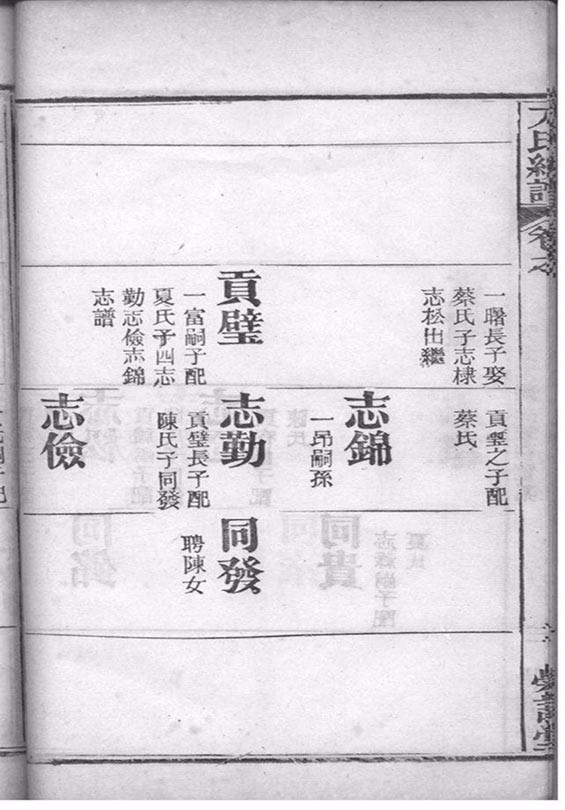 氏
卷之
一曙長子娶
蔡氏子志棣
志松出繼
貢璧
一富嗣子配
夏氏子四志
勤志儉志錦
志譜
之子配
蔡氏
志錦
一昂嗣孫
志勤
貢璧長子配
陳氏子同發
志儉
同發
聘陳女